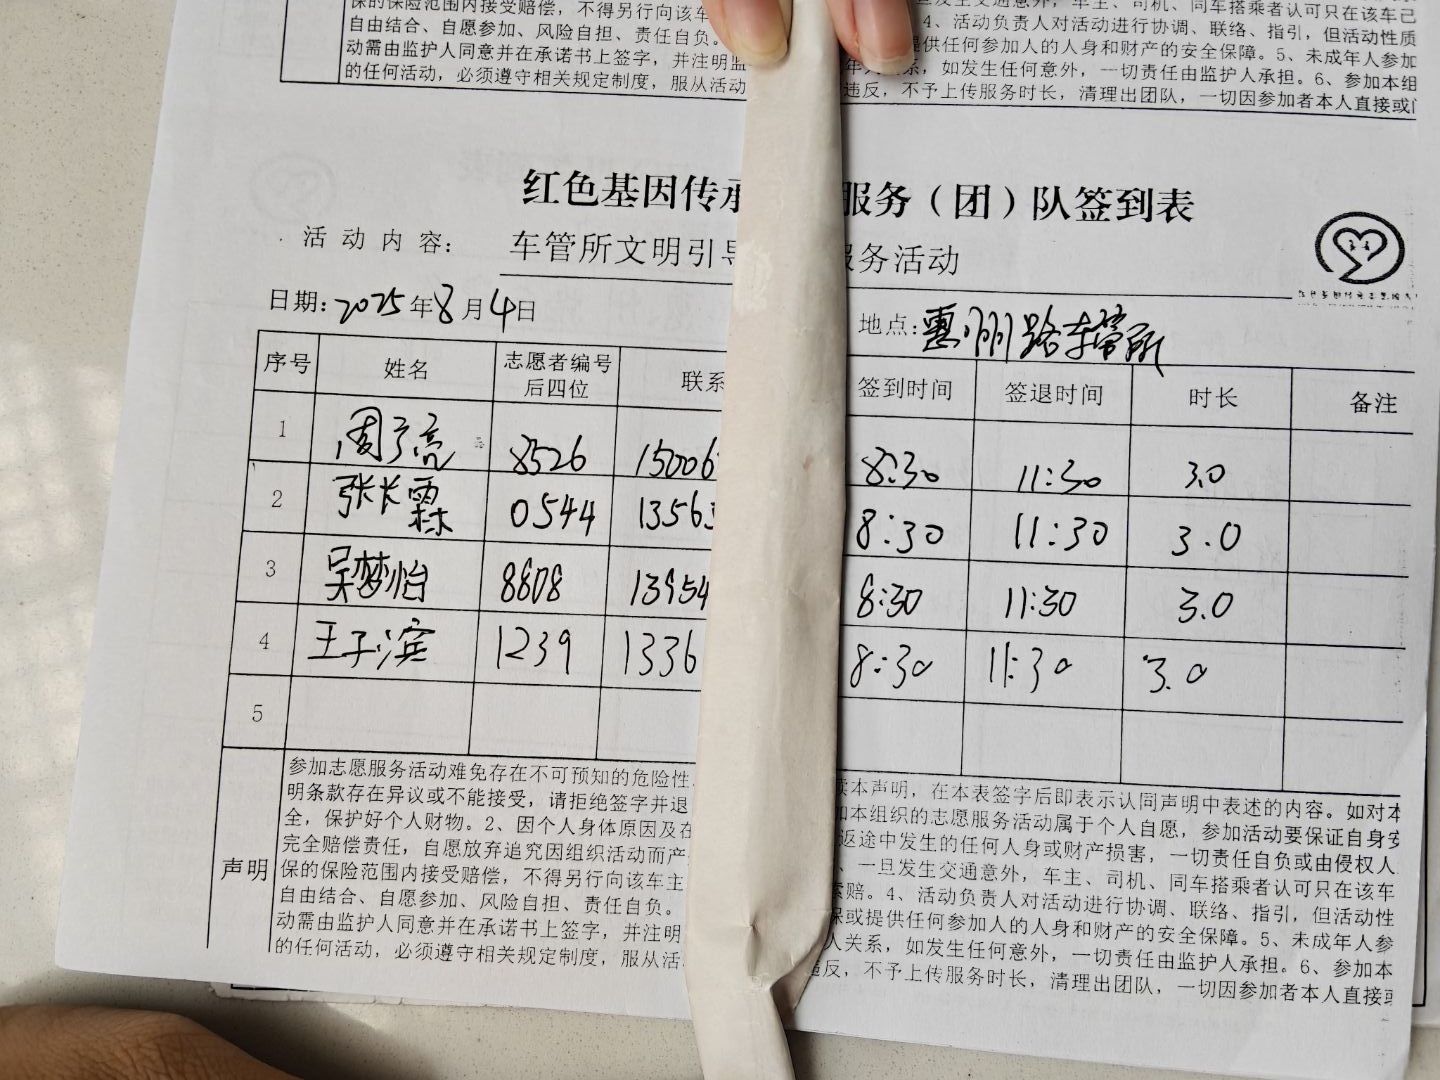 保的保险范围内接受赔偿，不得另行向该车 旦发生交通意外，车主、司机、同车搭乘者认可只在该车己
自由结合、自愿参加、风险自担、责任自负。 4、活动负责人对活动进行协调、联络、指引，但活动性质
动需由监护人同意并在承诺书上签字，并注明监 提供任何参加人的人身和财产的安全保障。5、未成年人参加
的任何活动，必须遵守相关规定制度，服从活动 系，如发生任何意外，一切责任由监护人承担。6、参加本组
违反，不予上传服务时长，清理出团队，一切因参加者本人直接或
红色基因传承 服务（团）队签到表
活动内容： 车管所文明引导 服务活动
日期：2025年8月4日 地点： 路车管所
序号 姓名 志愿者编号后四位 联系 签到时间 签退时间 时长 备注
1 周子亮 8526 15006 8:30 11:30 3.0
2 张长霖 0544 13563 8:30 11:30 3.0
3 吴梦怡 8808 13954 8:30 11:30 3.0
4 王子滨 1239 1336 8:30 11:30 3.0
5
声明
参加志愿服务活动难免存在不可预知的危险性 读本声明，在本表签字后即表示认同声明中表述的内容。如对本
明条款存在异议或不能接受，请拒绝签字并退 加本组织的志愿服务活动属于个人自愿，参加活动要保证自身安
全，保护好个人财物。2、因个人身体原因及在 返途中发生的任何人身或财产损害，一切责任自负或由侵权人
完全赔偿责任，自愿放弃追究因组织活动而产 、一旦发生交通意外，车主、司机、同车搭乘者认可只在该车
保的保险范围内接受赔偿，不得另行向该车主 索赔。4、活动负责人对活动进行协调、联络、指引，但活动性
自由结合、自愿参加、风险自担、责任自负。 保或提供任何参加人的人身和财产的安全保障。5、未成年人参
动需由监护人同意并在承诺书上签字，并注明 人关系，如发生任何意外，一切责任由监护人承担。6、参加本
的任何活动，必须遵守相关规定制度，服从活 违反，不予上传服务时长，清理出团队，一切因参加者本人直接或